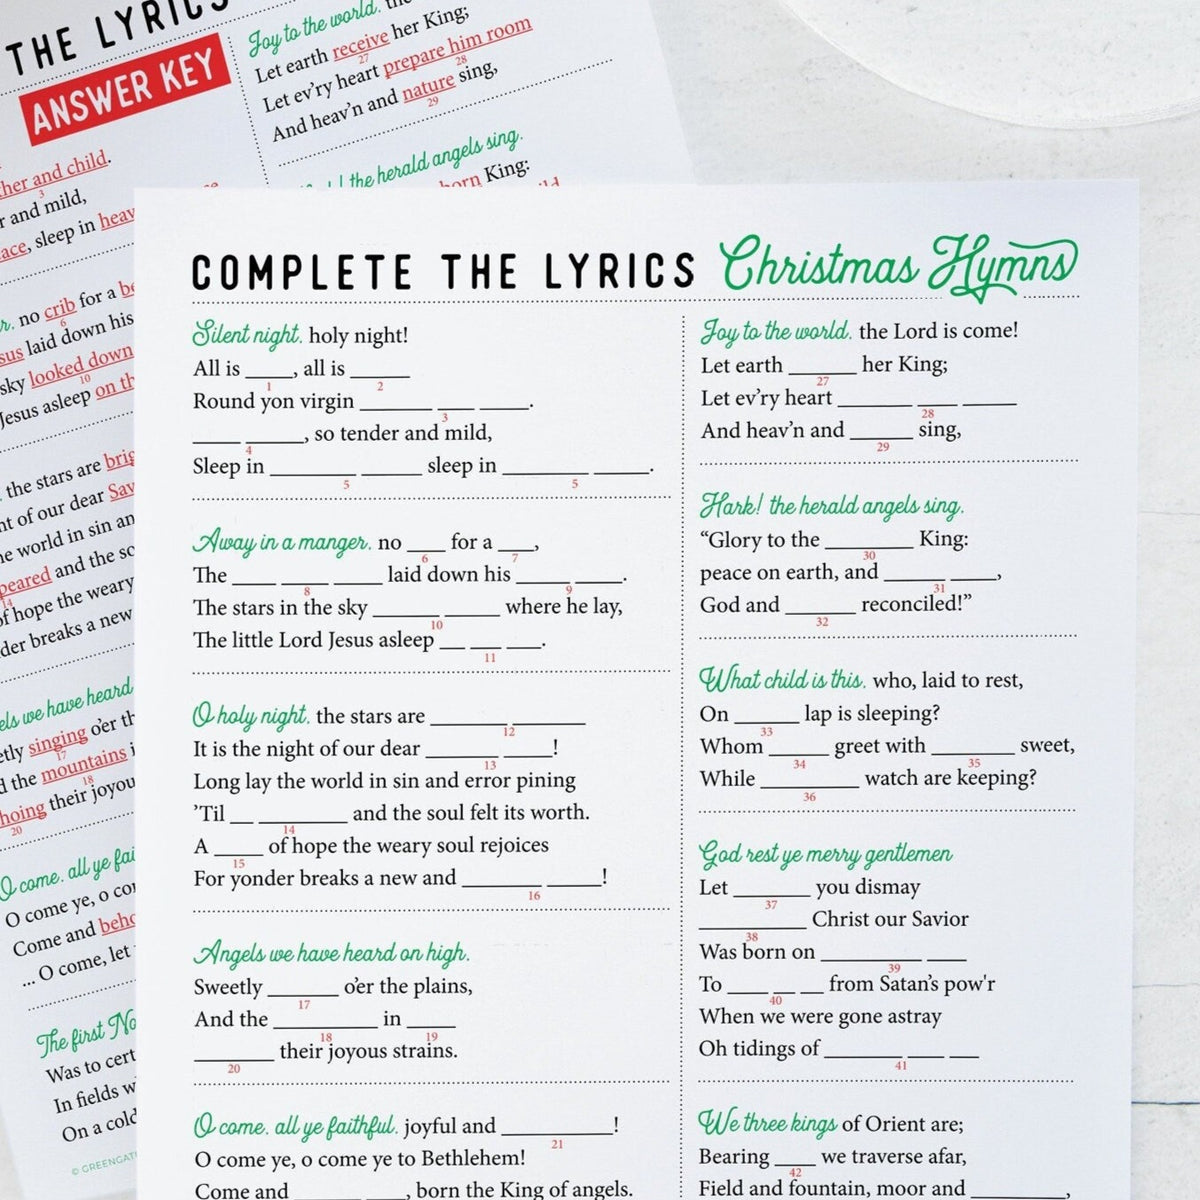 THE LYRICS
ANSWER KEY
ther and child.
3
r and mild,
ace, sleep in heav
no crib for a be
6
sus laid down his
sky looked down
10
Jesus asleep on th
the stars are brig
nt of our dear Sav
he world in sin an
peared and the so
14
of hope the weary
der breaks a new
els we have heard
etly singing o'er th
17
d the mountains i
18
hoing their joyou
20
O come, all ye fai
O come ye, o co
Come and beho
... O come, let
The first No
Was to cert
In fields w
On a cold
© GREENGAT
Joy to the world, the
Let earth receive her King;
27
Let ev'ry heart prepare him room
28
And heav'n and nature sing,
29
the herald angels sing.
born King:
COMPLETE THE LYRICS Christmas Hymns
Silent night, holy night!
All is ____, all is _____
1 2
Round yon virgin ______ ___ ____.
3
____ _____, so tender and mild,
4
Sleep in _______ _____ sleep in _______ _____.
5 5
Away in a manger, no ___ for a ___,
6 7
The ____ ____ ____ laid down his ____ ____.
8 9
The stars in the sky _____ _____ where he lay,
10
The little Lord Jesus asleep __ ___ ___.
11
O holy night, the stars are ______ ______
12
It is the night of our dear __________!
13
Long lay the world in sin and error pining
'Til __ _______ and the soul felt its worth.
14
A ____ of hope the weary soul rejoices
15
For yonder breaks a new and ______ ____!
16
Angels we have heard on high,
Sweetly ______ o'er the plains,
17
And the ________ in ____
18 19
______ their joyous strains.
20
O come, all ye faithful, joyful and _________!
21
O come ye, o come ye to Bethlehem!
Come and ______ ____, born the King of angels.
Joy to the world, the Lord is come!
Let earth _____ her King;
27
Let ev'ry heart ______ ___ ____
28
And heav'n and _____ sing,
29
Hark! the herald angels sing,
“Glory to the _______ King:
30
peace on earth, and _____ ____,
31
God and ______ reconciled!”
32
What child is this, who, laid to rest,
On _____ lap is sleeping?
33
Whom _____ greet with _______ sweet,
34 35
While ________ watch are keeping?
36
God rest ye merry gentlemen
Let ______ you dismay
37
_________ Christ our Savior
38
Was born on ________ ___
39
To ___ __ __ from Satan's pow'r
40
When we were gone astray
Oh tidings of ______ ___ ___
41
We three kings of Orient are;
Bearing ___ we traverse afar,
42
Field and fountain, moor and __________,